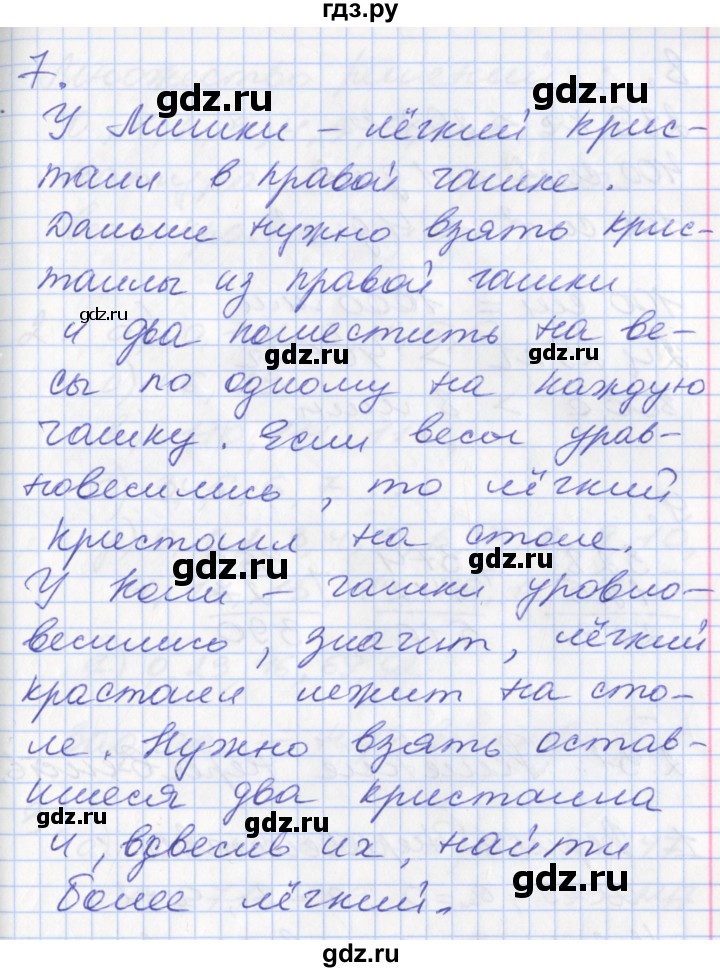 гдз.ру
7.
gdz.ru gdz.ru
У Мишки – лёгкий крис-
талл в правой чашке.
gdz.ru
Дальше нужно взять крис-
таллы из правой чашки
gdz.ru
и два поместить на ве-
gdz.ru gdz.ru
сы по одному на каждую
чашку. Если весы урав-
новесились, то лёгкий
кристалл на столе.
gdz.ru gdz.ru
У Коли – чашки уровно-
весились, значит, лёгкий
красталл лежит на сто-
ле. Нужно взять остав-
шиеся два кристалла
gdz.ru gdz.ru
и, взвесив их, найти
более лёгкий.
gdz.ru
gdz.ru